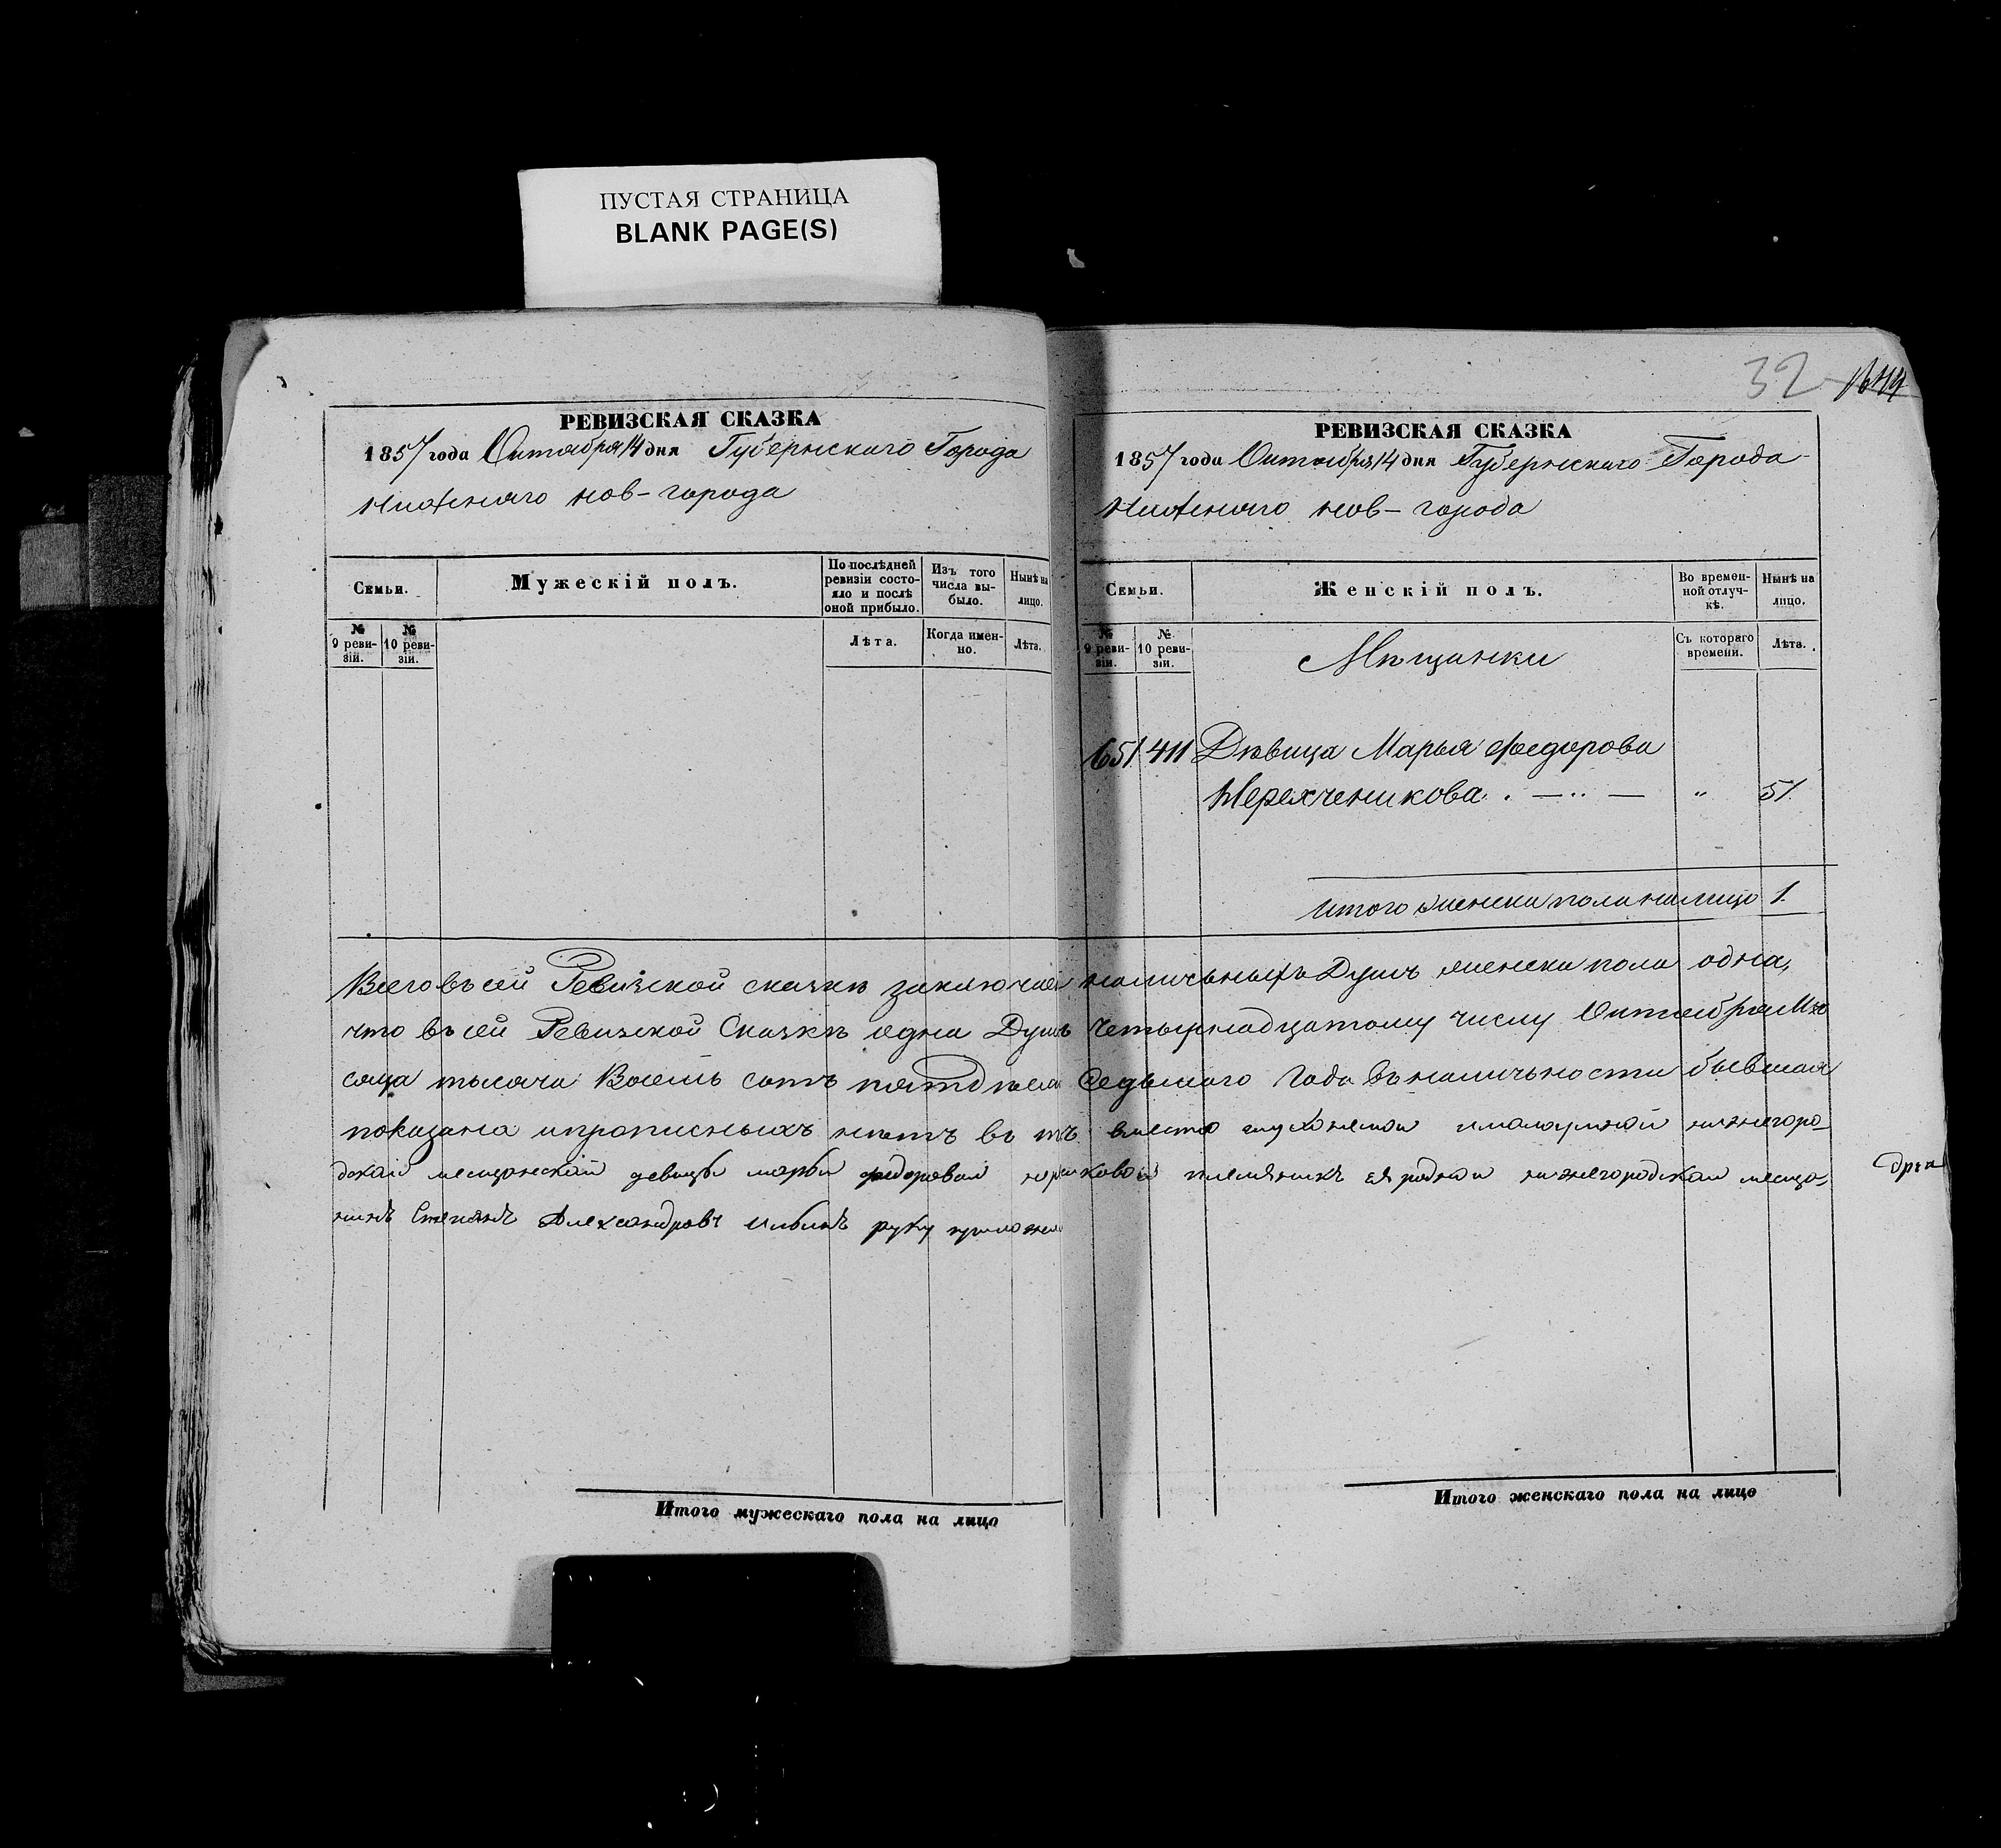 ПУСТАЯ СТРАНИЦА
BLANK PAGE(S)
32
РЕВИЗСКАЯ СКАЗКА
1857 года Октября 14 дня Губернскаго Города
Нижняго нов-города
Семьи.
Мужескій полъ.
По послѣдней ревизіи состояло и послѣ оной прибыло.
Изъ того числа выбыло.
Нынѣ на лицо.
№ 9 ревизіи.
№ 10 ревизіи.
Лѣта.
Когда именно.
Лѣта.
РЕВИЗСКАЯ СКАЗКА
1857 года Октября 14 дня Губернскаго Города
Нижняго нов-города
Семьи.
Женскій полъ.
Во временной отлучкѣ.
Нынѣ на лицо.
№ 9 ревизіи.
№ 10 ревизіи.
Мѣщанки
Съ котораго времени.
Лѣта.
651 411 Дѣвица Марья Федорова
51.
итого женска пола налицо 1.
Всего въ сей Ревизской сказкѣ заключае наличьныхъ Душъ женска пола одна,
что въ сей Ревизской Сказкѣ одна Душъ Четырнадцатому числу Октября Мѣ
сяца тысяча Восемь сотъ пятдеся Седьмого Года въ наличьности бывшая
показана ипрописныхъ нѣтъ въ тъ вместо глухонемой нижегоро-
дской мещанской девицы марьи федоровой племяникъ ея родной нижегородской меща-
нинъ Степанъ Александровъ Ильинъ руку приложи
Итого мужескаго пола на лицо
Итого женскаго пола на лицо